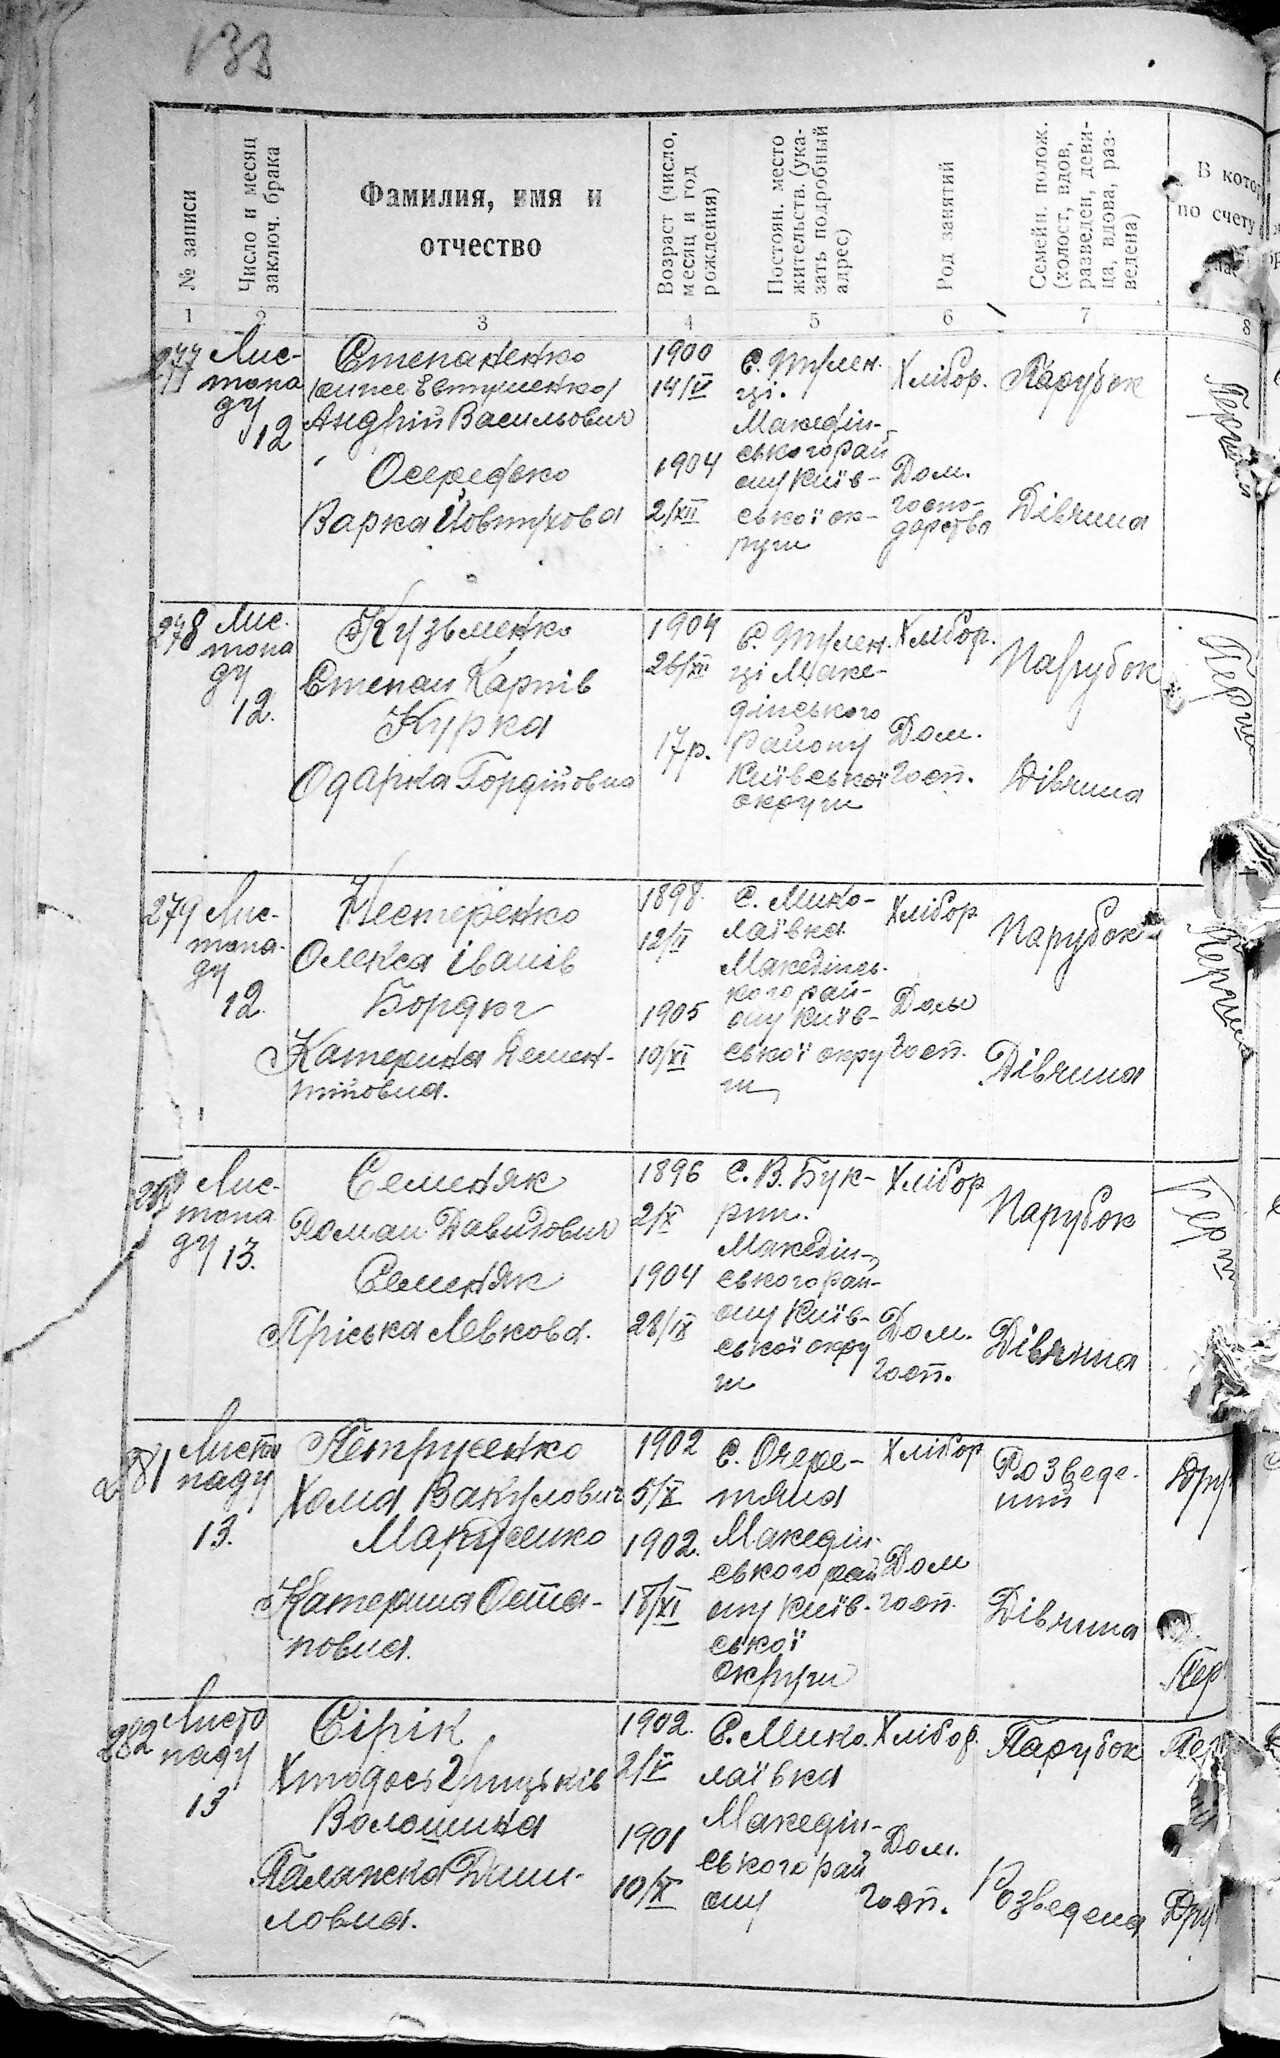 138
№ записи
Число и месяц
заключ. брака
Фамилия, имя и
отчество
Возраст (число,
месяц и год
рождения)
Постоян. место
жительств. (ука-
зать подробный
адрес)
Род занятий
Семейн. полож.
(холост, вдов,
разведен, деви-
ца, вдова, раз-
ведена)
В котор
по счету
1
2
3
4
5
6
7
8
277
Лис-
топа
ду
12
Степаненко
Андрій Васильович
Осередько
Варка Йовтухова
1900
14/V
1904
2/XII
С. Тулен.
ці.
Македін-
ського рай
ону Київ-
ської ок-
руги
Хлібор.
Дом.
госпо-
дарство
Парубок
Дівчина
278
Лис-
топа
ду
12.
Кузьменко
Степан Карпів
Курка
Одарка Гордійовна
1904
26/XII
17 р.
С. Тулен.
ці Маке-
дінського
району
Київської
округи
Хлібор.
Дом.
госп.
Парубок
Дівчина
279
Лис-
топа-
ду
12.
Нестеренко
Олекса Іванів
Бордюг
Катерина Демен-
тійовна.
1898.
12/II
1905
10/XI
С. Мико-
лаївка
Македінсь-
кого рай-
ону Київ-
ської окру
ги
Хлібор
Дом
госп.
Парубок
Дівчина
Перший
280
Лис-
топа
ду 13.
Семеняк
Роман Давидович
Семеняк
Пріська Левкова.
1896
2/X
1904
28/IX
С. В. Бук-
рин.
Македін-
ського рай-
ону Київ-
ської окру
ги
Хлібор
Дом.
госп.
Парубок
Дівчина
281
Листо
паду
13.
Петрусенко
Хома Вакулович
Марусенко
Катерина Оста-
повна.
1902
5/X
1902.
18/XI
С. Очере-
тяна
Македін-
ського рай
ону Київ-
ської
округи
Хлібор
Дом
госп.
Розведе-
ний
Дівчина
Дру
Пер
282
Листо
паду
13
Сірік
Хтодось Грицьків
Волошина
Палажка Дани-
ловна.
1902.
2/V
1901
10/X
С. Мико.
лаївка
Македін-
ського рай
ону
Хлібор.
Дом.
госп.
Парубок
Розведена
Пер
Дру